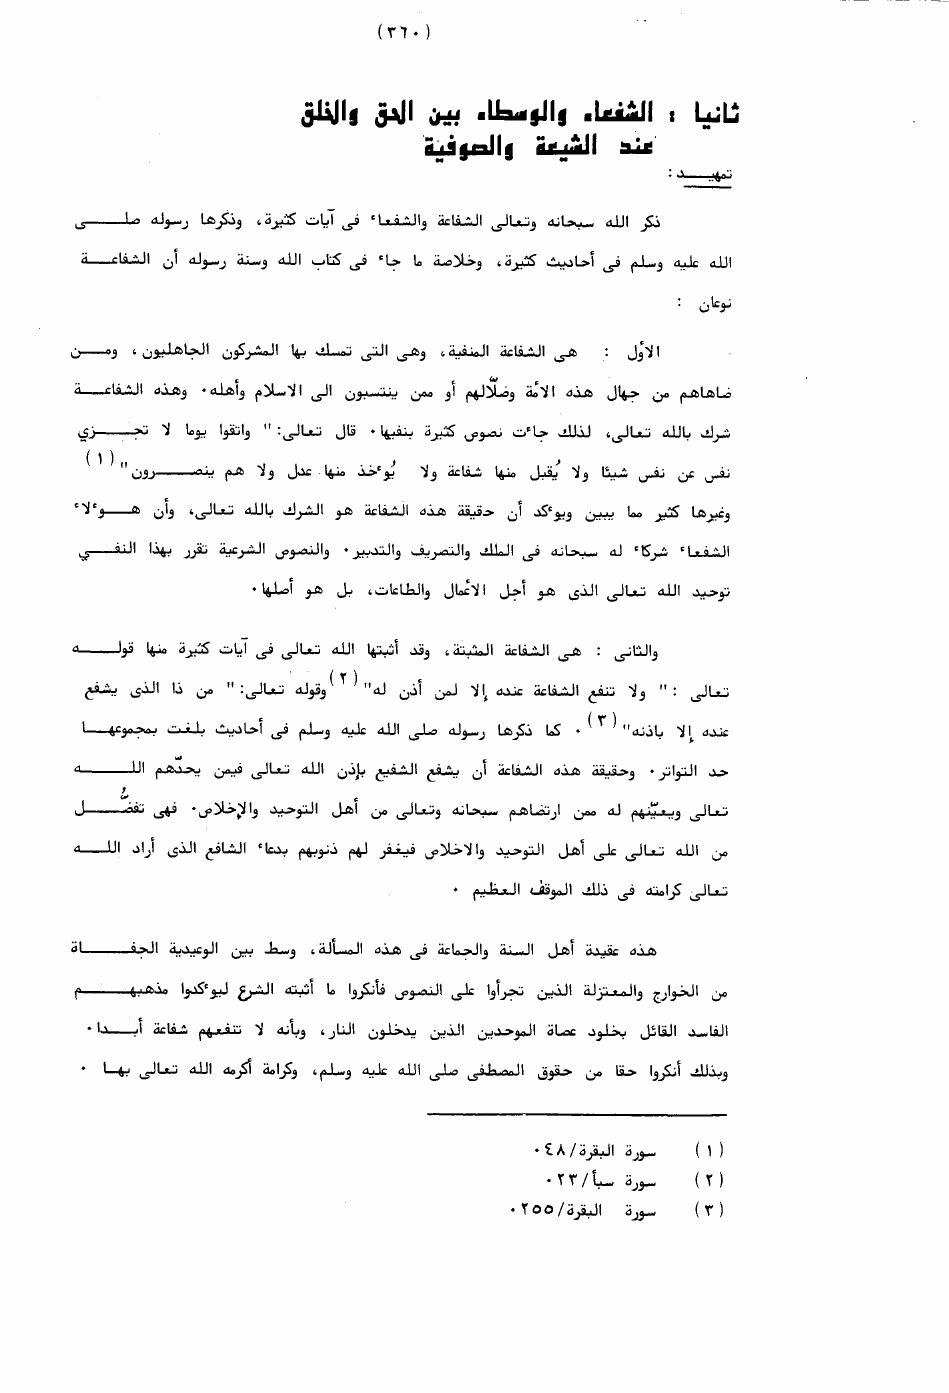 (٣٦٠)
ثانيا : الشفعاء والوسطاء بين الحق والخلق
عند الشيعة والصوفية
تمهيد :
ذكر الله سبحانه وتعالى الشفاعة والشفعاء فى آيات كثيرة، وذكرها رسوله صلى
الله عليه وسلم فى أحاديث كثيرة، وخلاصة ما جاء فى كتاب الله وسنة رسوله أن الشفاعة
نوعان :
الأول : هى الشفاعة المنفية، وهى التى تمسك بها المشركون الجاهليون، ومن
ضاهاهم من جهال هذه الأمة وضلّالهم أو ممن ينتسبون الى الاسلام وأهله٠ وهذه الشفاعة
شرك بالله تعالى، لذلك جاءت نصوص كثيرة بنفيها٠ قال تعالى:" واتقوا يوما لا تجزي
نفس عن نفس شيئا ولا يُقبل منها شفاعة ولا يُوءخذ منها عدل ولا هم ينصرون"(١)
وغيرها كثير مما يبين ويوءكد أن حقيقة هذه الشفاعة هو الشرك بالله تعالى، وأن هوءلاء
الشفعاء شركاء له سبحانه فى الملك والتصريف والتدبير٠ والنصوص الشرعية تقرر بهذا النفي
توحيد الله تعالى الذى هو أجل الأعمال والطاعات، بل هو أصلها٠
والثانى : هى الشفاعة المثبتة، وقد أثبتها الله تعالى فى آيات كثيرة منها قوله
تعالى :" ولا تنفع الشفاعة عنده إلا لمن أذن له"(٢)وقوله تعالى:" من ذا الذى يشفع
عنده إلا باذنه"(٣)٠ كما ذكرها رسوله صلى الله عليه وسلم فى أحاديث بلغت بمجموعها
حد التواتر٠ وحقيقة هذه الشفاعة أن يشفع الشفيع بإذن الله تعالى فيمن يحدّهم الله
تعالى ويعيّنهم له ممن ارتضاهم سبحانه وتعالى من أهل التوحيد والإخلاص٠ فهى تفضُّل
من الله تعالى على أهل التوحيد والاخلاص فيغفر لهم ذنوبهم بدعاء الشافع الذى أراد الله
تعالى كرامته فى ذلك الموقف العظيم ٠
هذه عقيدة أهل السنة والجماعة فى هذه المسألة، وسط بين الوعيدية الجفاة
من الخوارج والمعتزلة الذين تجرأوا على النصوص فأنكروا ما أثبته الشرع ليوءكدوا مذهبهم
الفاسد القائل بخلود عصاة الموحدين الذين يدخلون النار، وبأنه لا تنفعهم شفاعة أبدا٠
وبذلك أنكروا حقا من حقوق المصطفى صلى الله عليه وسلم، وكرامة أكرمه الله تعالى بها ٠
(١) سورة البقرة/٤٨٠
(٢) سورة سبأ/٢٣٠
(٣) سورة البقرة/٢٥٥٠